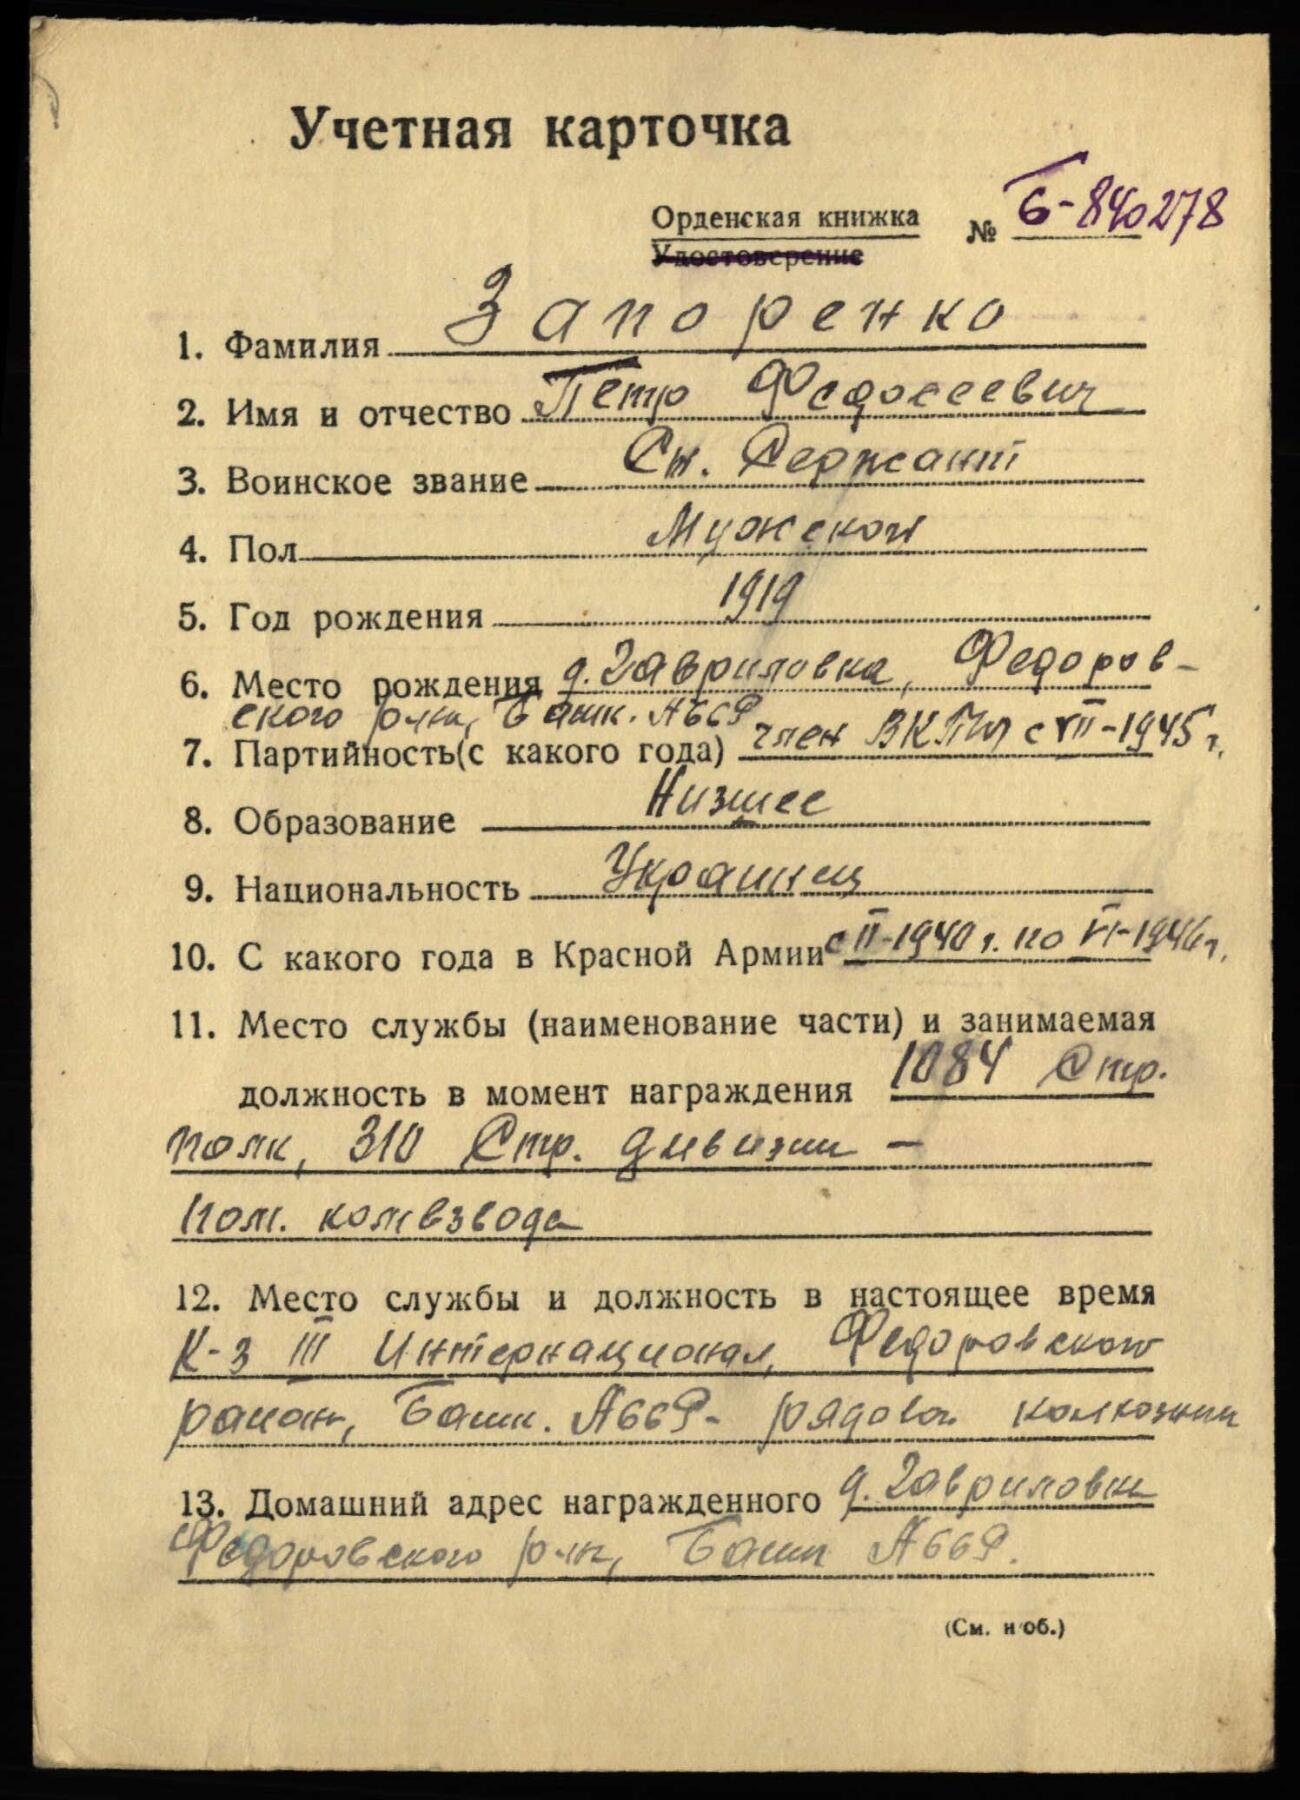 Учетная карточка
Орденская книжка № Б-840278
Удостоверение
1. Фамилия Запоренко
2. Имя и отчество Петр Федосеевич
3. Воинское звание Ст. Сержант
4. Пол Мужской
5. Год рождения 1919
6. Место рождения д. Гавриловка, Федоров-
ского р-на, Башк. АССР
7. Партийность (с какого года) член ВКП(б) с VII-1945 г.
8. Образование Низшее
9. Национальность Украинец
10. С какого года в Красной Армии с II-1940 г. по VI-1946 г.
11. Место службы (наименование части) и занимаемая
должность в момент награждения 1084 Стр.
полк, 310 Стр. дивизии —
пом. комвзвода
12. Место службы и должность в настоящее время
К-з III Интернационал, Федоровского
район, Башк. АССР - рядовой колхозник
13. Домашний адрес награжденного д. Гавриловка
Федоровского р-на, Башк АССР.
(См. н об.)